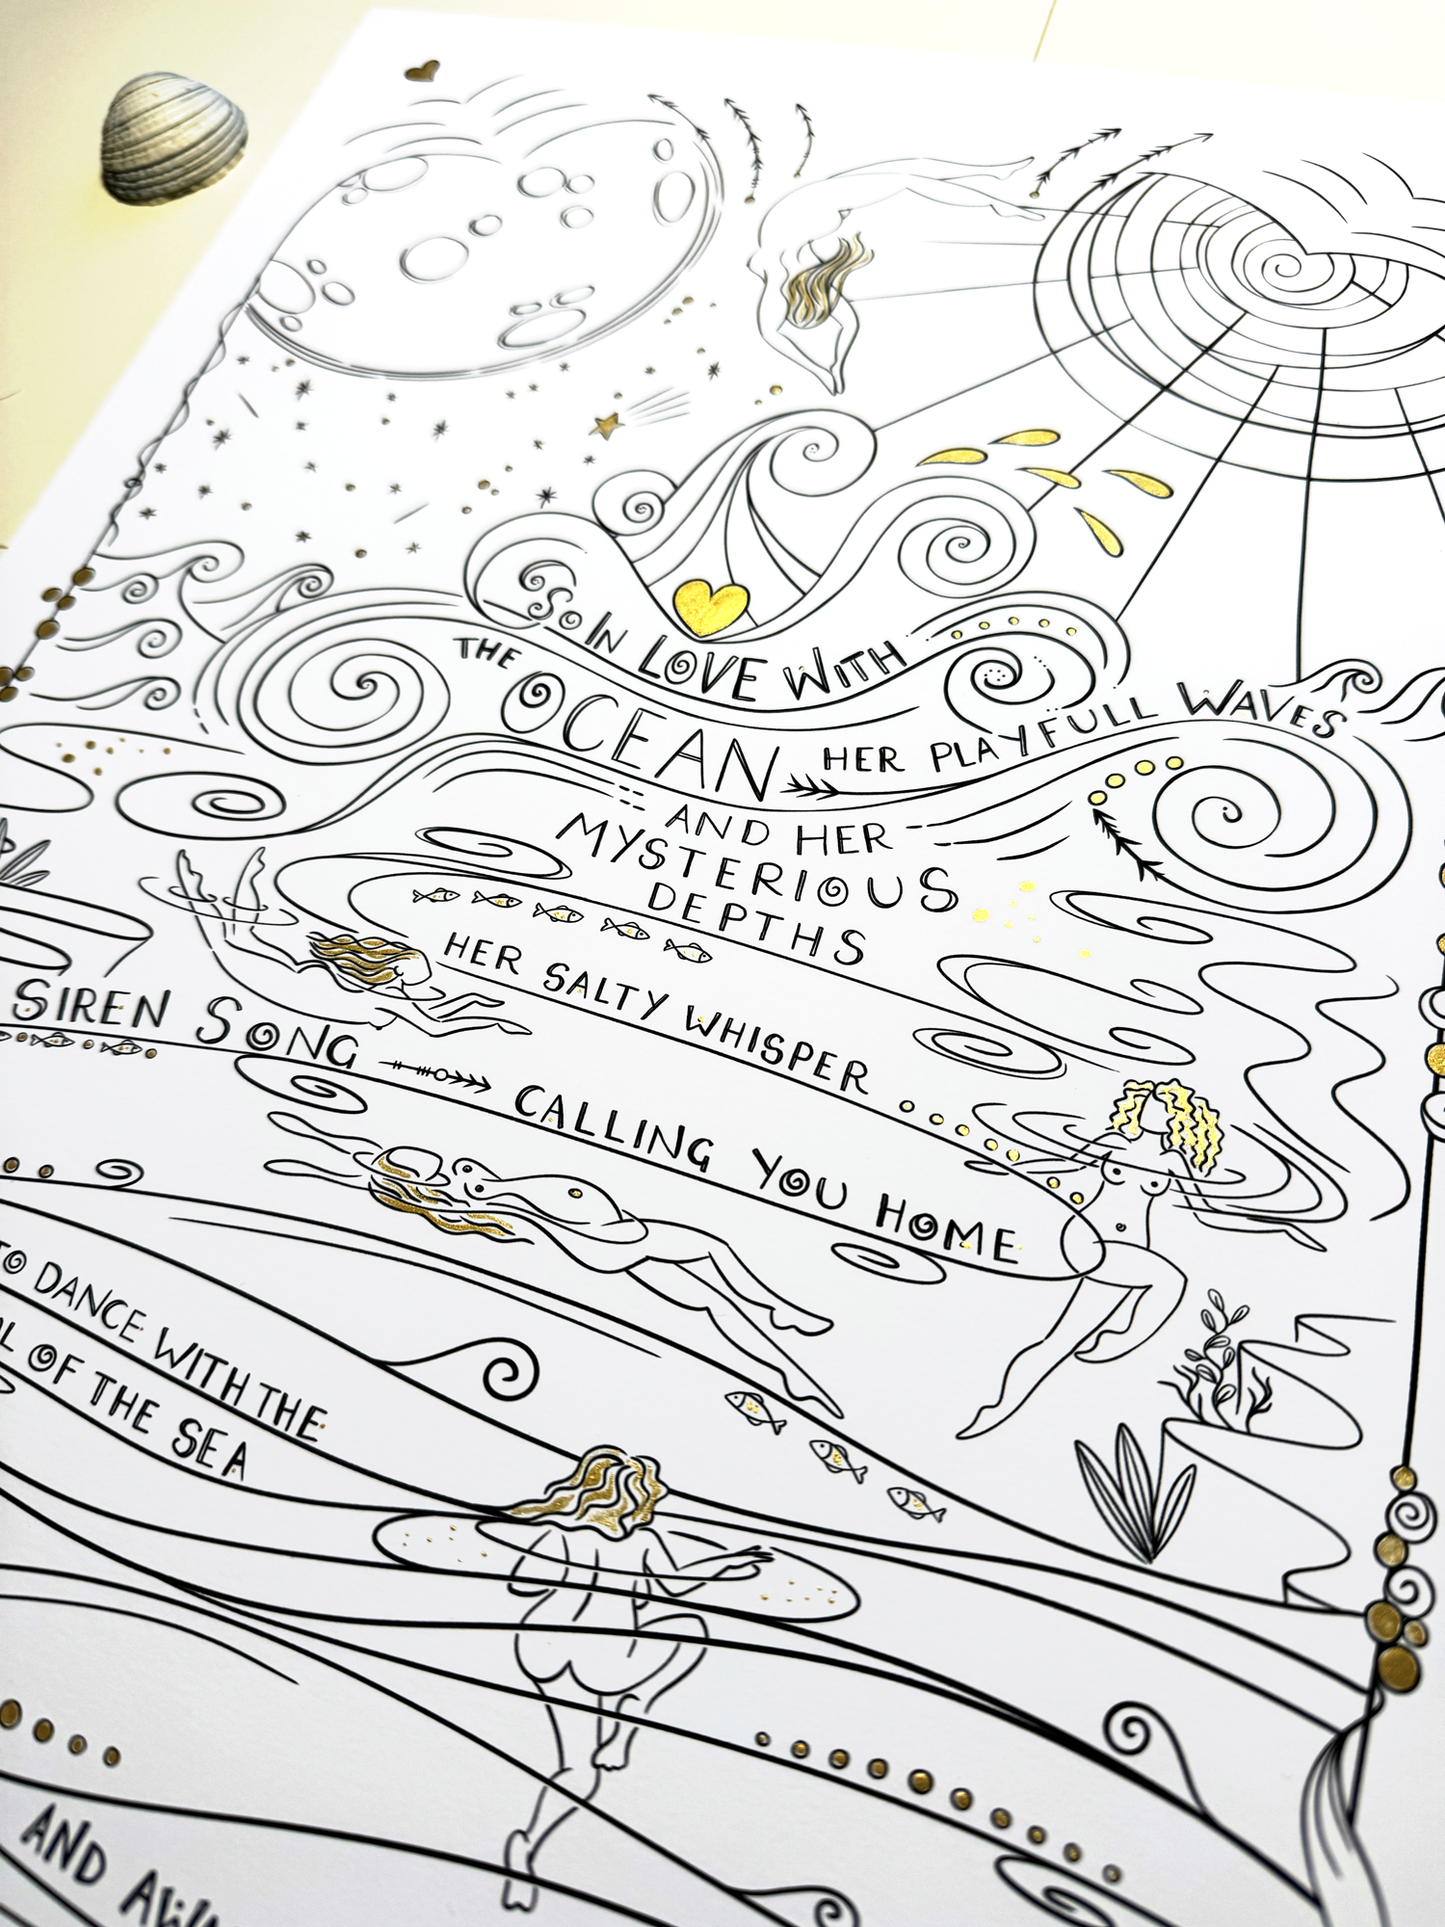 So IN LOVE WITH
THE OCEAN HER PLAYFULL WAVES
AND HER
MYSTERIOUS
DEPTHS
HER SALTY WHISPER
SIREN SONG CALLING YOU HOME
TO DANCE WITH THE
OF THE SEA
AND